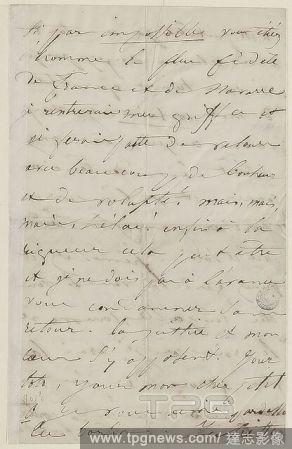 si par impossible vous étiez
l'homme le plus fidèle
de France et de Navarre
je rentrerais mes griffes et
je ferais patte de velours
avec beaucoup de bonheur
et de volupté. mais, mais,
mais, hélas! enfin à la
rigueur cela peut être
et je ne dois pas à l'avance
vous condamner sans
retour. La justice et mon
cœur s'y opposent. Pour
mon cher petit
TPG
www.tpgnews.com 達志影像